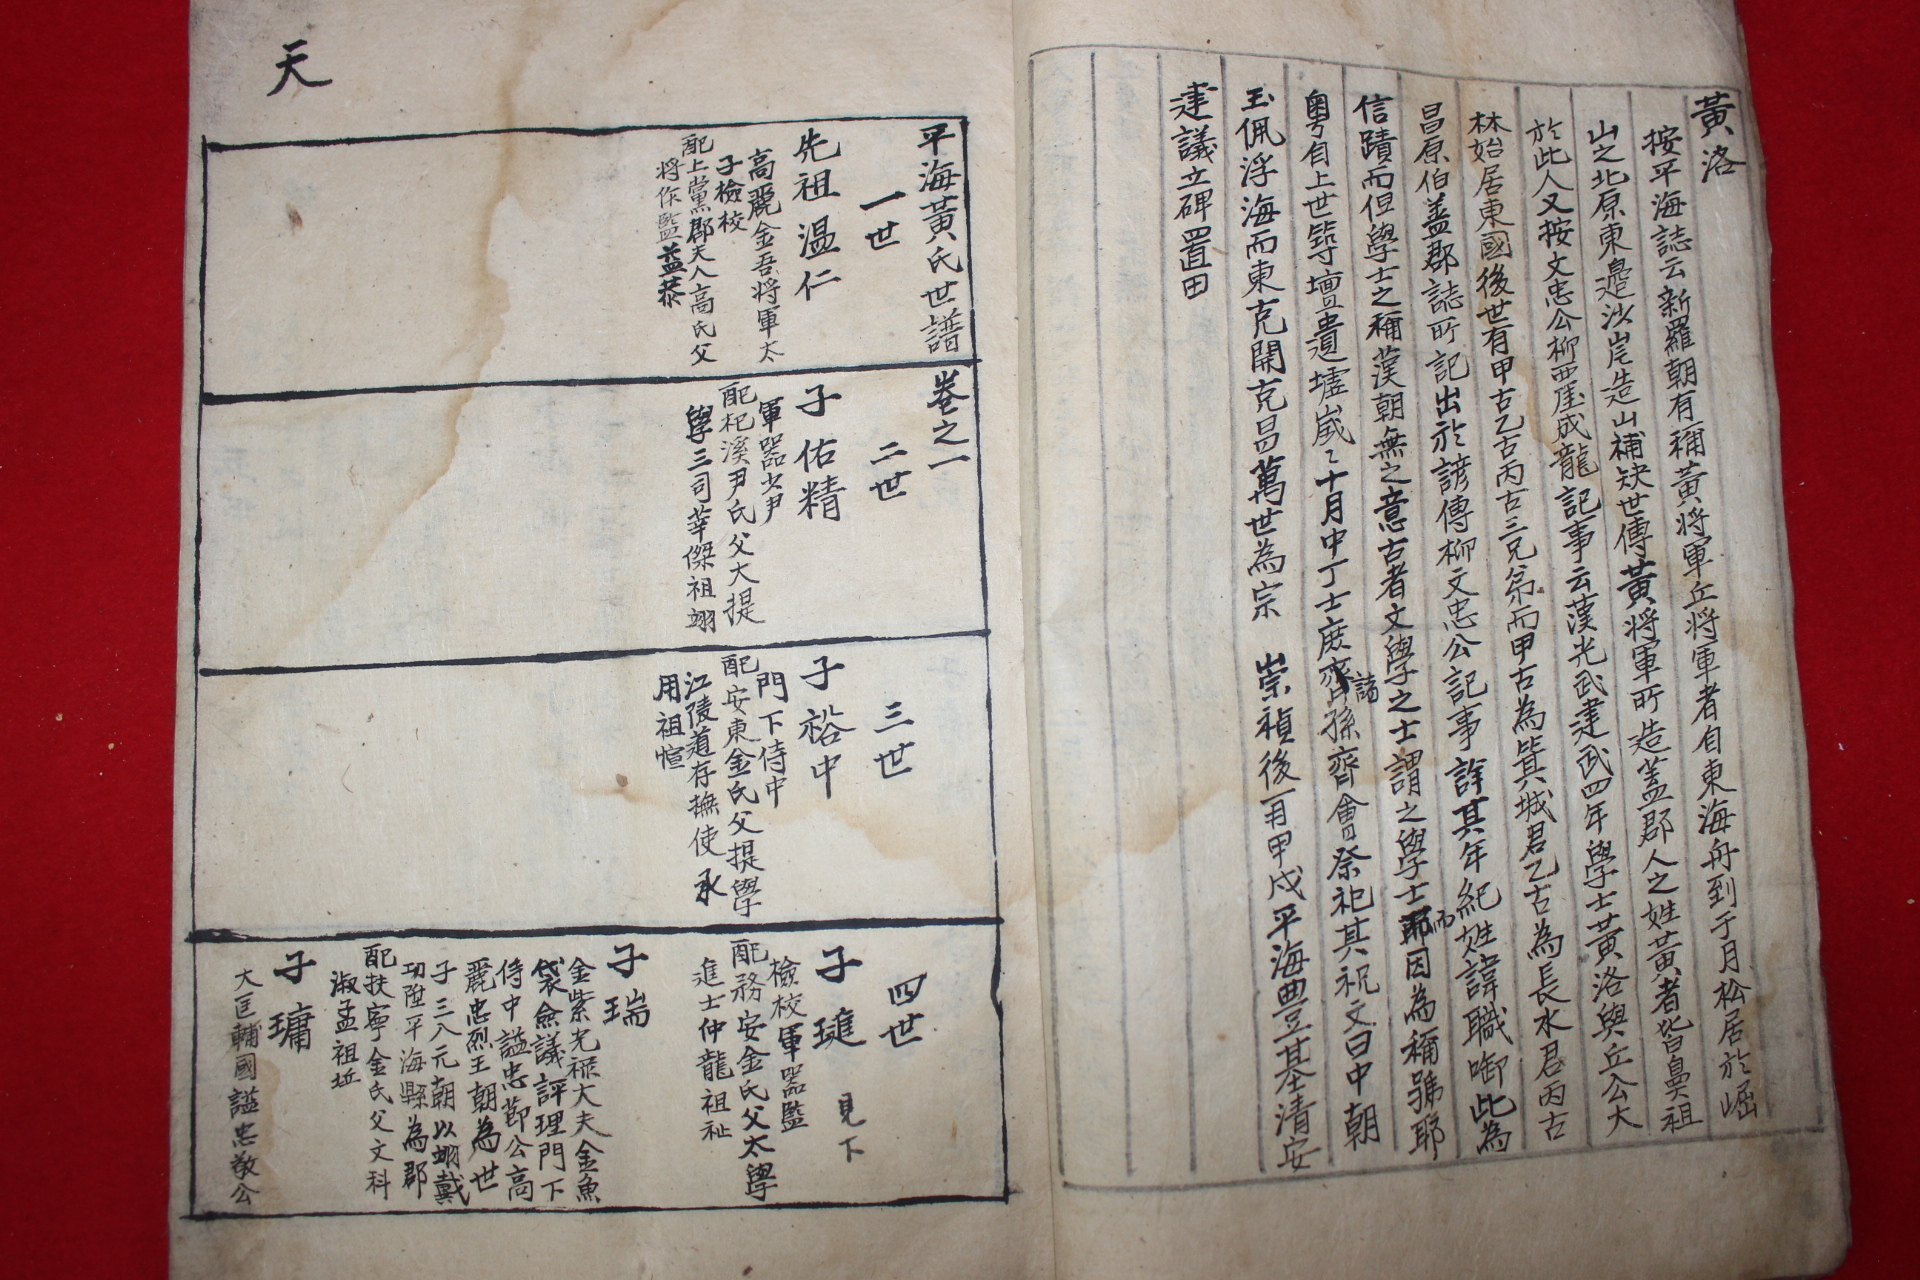 黃洛
按平海誌云新羅朝有稱黃將軍丘將軍者自東海舟到于月松居於崛
山之北原東邊沙岸造山補缺世傳黃將軍所造盖郡人之姓黃者皆鼻祖
於此人又按文忠公柳西厓成龍記事云漢光武建武四年學士黃洛與丘公大
林始居東國後世有甲古乙古丙古三兄弟而甲古為箕城君乙古為長水君丙古
昌原伯盖郡誌所記出於諺傳柳文忠公記事詳其年紀姓諱職啣此為
信蹟而但學士之稱漢朝無之意古者文學之士謂之學士而因為稱號耶
粵自上世築壇遺墟嵗〻十月中丁士庶諸孫齊會祭祀其祝文曰中朝
玉佩浮海而東克開克昌萬世為宗 崇禎後一百甲戌平海豊基清安
建議立碑置田
天
平海黃氏世譜 卷之一
一世
先祖溫仁
高麗金吾將軍太
子檢校
配上黨郡夫人高氏父
將作監益恭
二世
子佑精
軍器少尹
配杞溪尹氏父大提
學三司莘傑祖翊
三世
子裕中
門下侍中
配安東金氏父提學
江陵道存撫使承
用祖愃
四世
子璡 見下
檢校軍器監
配務安金氏父太學
進士仲龍祖祉
子瑞
金紫光祿大夫金魚
袋僉議評理門下
侍中謚忠節公高
麗忠烈王朝為世
子三入元朝以翊戴
功陞平海縣為郡
配扶寧金氏父文科
淑孟祖坵
子㻿
大匡輔國謚忠敬公